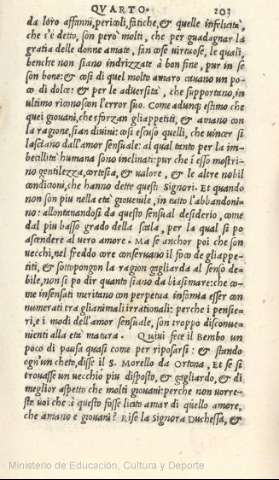 QVARTO. 203
da loro affanni, pericoli, fatiche, & quelle infelicità,
che s'è detto, son però molti, che per guadagnar la
gratia delle donne amate, fan cose virtuose, le quali,
benche non siano indrizzate à bon fine, pur in se
son bone: & cosi di quel molto amaro cauano un po-
co di dolce: & per le aduersità, che supportano, in
ultimo riconoscon l'error suo. Come adunq; estimo che
quei giouani, che sforzan gliappetiti, & amano con
la ragione, sian diuini: cosi escuso quelli, che uincer si
lasciano dall'amor sensuale: al qual tanto per la im-
becillità humana sono inclinati: pur che i esso mostri-
no gentilezza, cortesia, & ualore, & le altre nobil
conditioni, che hanno dette questi Signori. Et quando
non son piu nella età giouenile, in tutto l'abbandoni-
no: allontanandosi da questo sensual desiderio, come
dal piu basso grado della scala, per la qual si po
ascendere al uero amore. Ma se anchor poi che son
uecchi, nel freddo core conseruano il foco de gliappe-
titi, & sottopongon la ragion gagliarda al senso de-
bile, non si po dir quanto siano da biasimare: che co-
me insensati meritano con perpetua infamia esser con
numerati tra glianimali irrationali: perche i pensie-
ri, e i modi dell'amor sensuale, son troppo disconue-
nienti alla età matura. Quiui fece il Bembo un
poco di pausa quasi come per riposarsi: & stando
ogn'un cheto, disse il S. Morello da Ortona, Et se si
trouasse un uecchio piu disposto, & gagliardo, & di
meglior aspetto che molti giouani: perche non uorre-
ste uoi che à questo fosse licito amar di quello amore,
che amano e giouani? Rise la Signora Duchessa, &
Ministerio de Educación, Cultura y Deporte